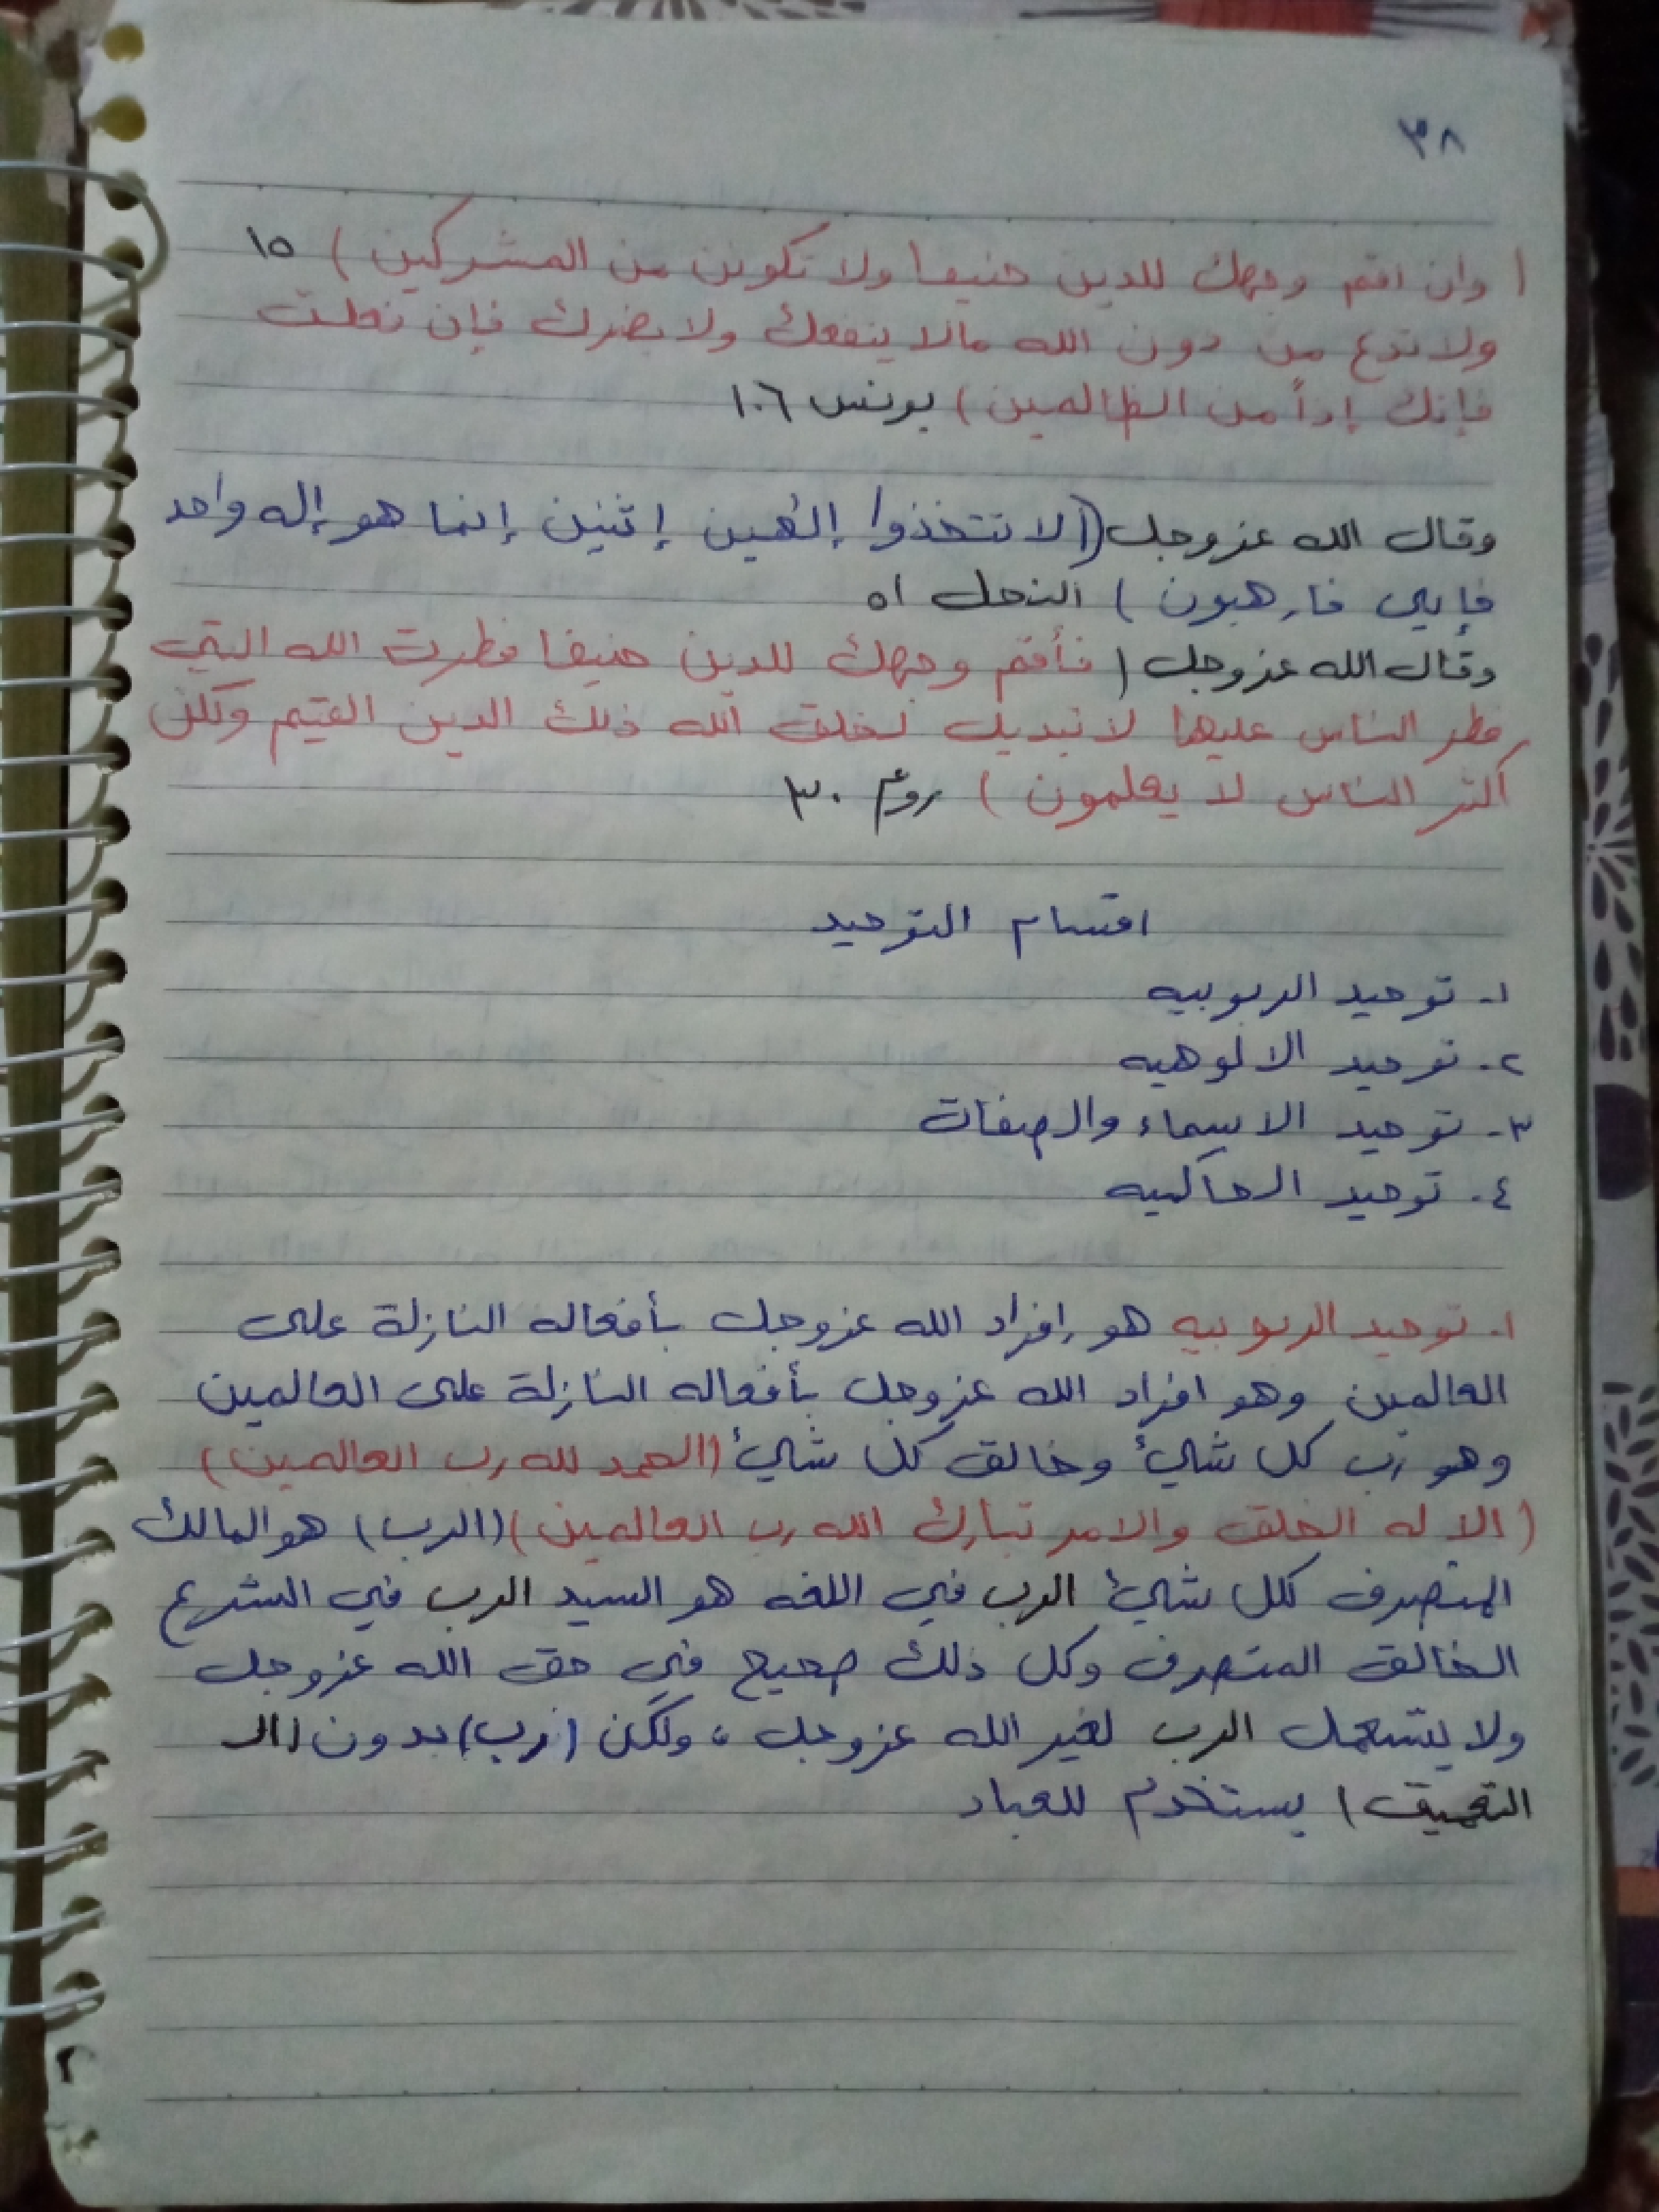 ٣٨
( وان اقم وجهك للدين حنيفا ولا تكونن من المشركين ) ١٥
ولا تدع من دون الله مالا ينفعك ولا يضرك فإن فعلت
فإنك إذاً من الظالمين ) يونس ١٠٦
وقال الله عزوجل (( لا تتخذوا إلهين إثنين إنما هو إله واحد
فإيي فارهبون ) النحل ٥١
وقال الله عزوجل ( فأقم وجهك للدين حنيفا فطرت الله التي
فطر الناس عليها لا تبديل لخلق الله ذلك الدين القيم ولكن
أكثر الناس لا يعلمون ) روم ٣٠
اقسام التوحيد
١- توحيد الربوبيه
٢- توحيد الالوهيه
٣- توحيد الاسماء والصفات
٤- توحيد الحاكميه
١- توحيد الربوبيه هو إفراد الله عزوجل بأفعاله النازلة على
العالمين وهو افراد الله عزوجل بأفعاله النازلة على العالمين
وهو رب كل شيئ وخالق كل شيئ (الحمد لله رب العالمين)
( الا له الخلق والامر تبارك الله رب العالمين) (الرب) هو المالك
المتصرف لكل شيئ الرب في اللغه هو السيد الرب في الشرع
الخالق المتصرف وكل ذلك صحيح في حق الله عزوجل
ولا يستعمل الرب لغير الله عزوجل ، ولكن (رب) بدون (ال
) يستخدم للعباد
٢